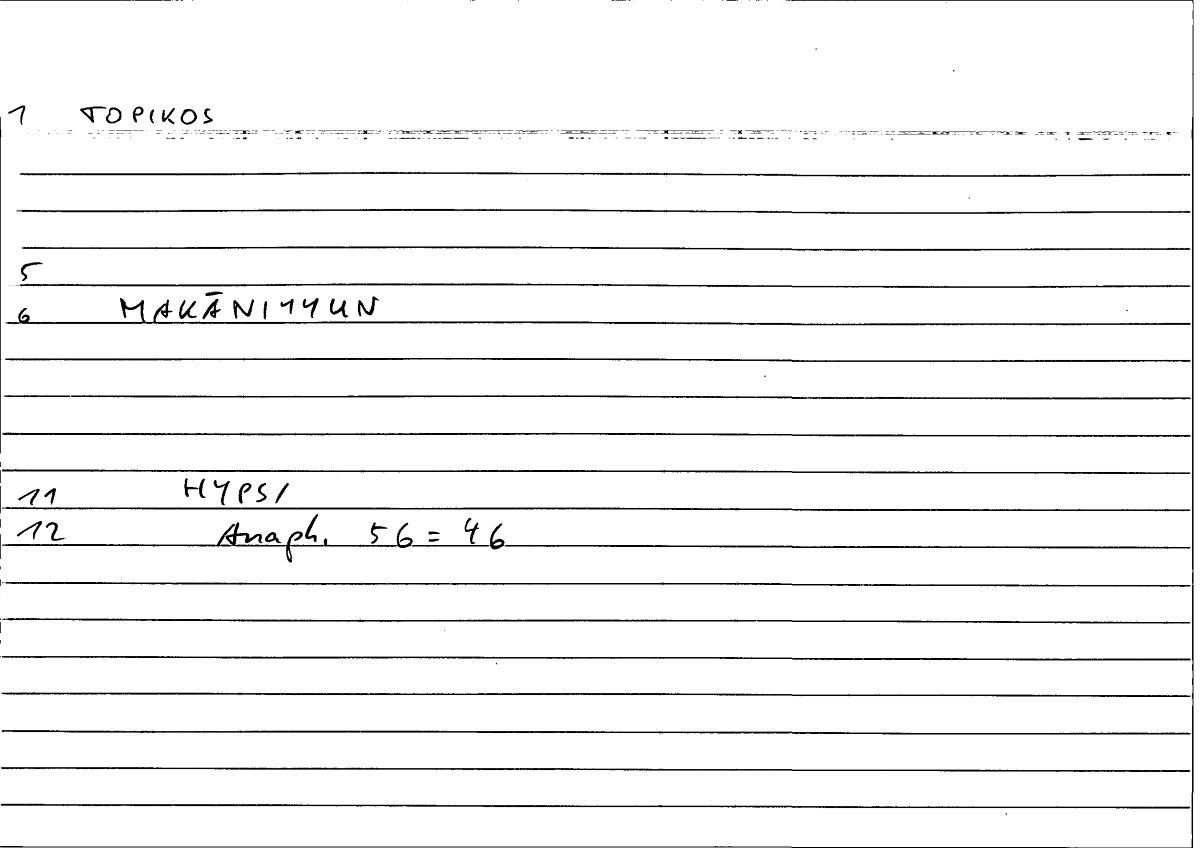 1 TOPIKOS
5
6 MAKĀNIYYUN
11 HYPS/
12 Anaph. 56 = 46